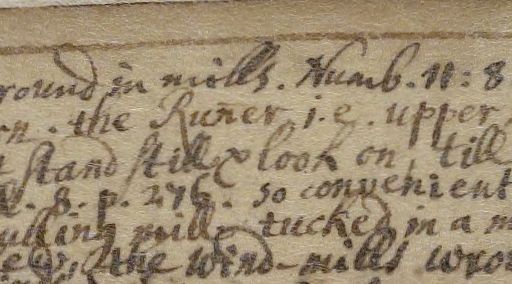 round in mills. Numb. 11: 8
rn. the Runer i.e. upper
t stand still & look on, till
. 8. p. 276. so convenient
ulling mill. tucked in a m
the wind-mills wro